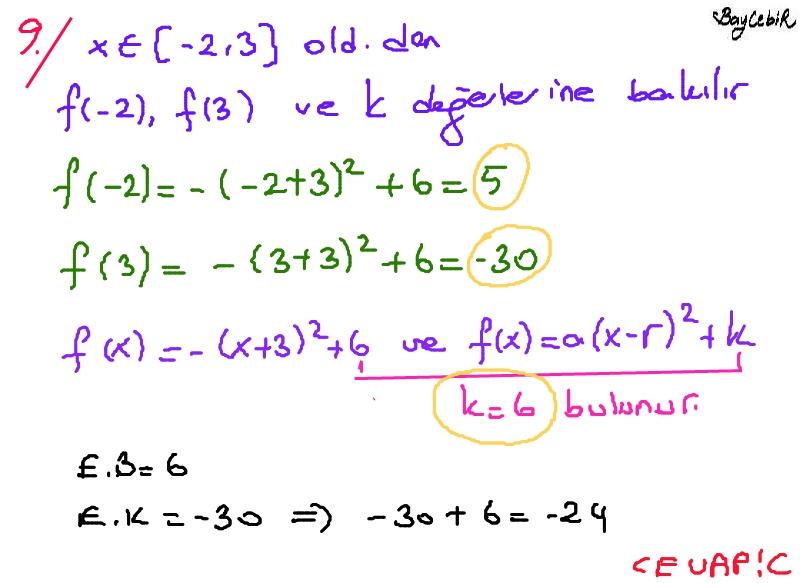 BayCebiR
9./ x ∈ [-2,3] old. dan
f(-2), f(3) ve k değerlerine bakılır
f(-2) = -(-2+3)² + 6 = 5
f(3) = -(3+3)² + 6 = -30
f(x) = -(x+3)² + 6 ve f(x) = a(x-r)² + k
k = 6 bulunur.
E.B = 6
E.K = -30 ⇒ -30 + 6 = -24
CEVAP:C